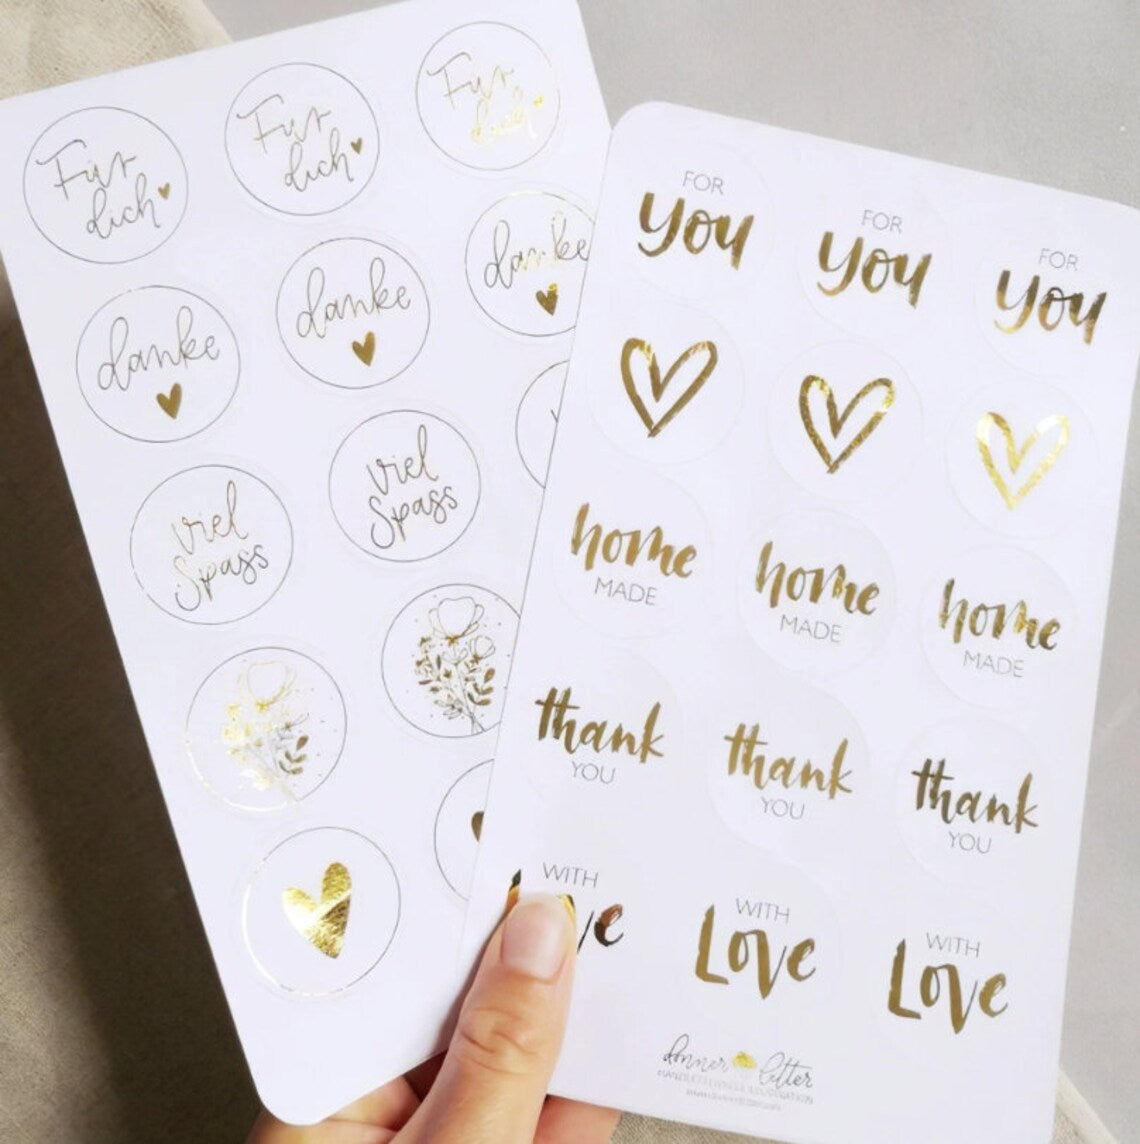 Für
dich
Für
dich
Für
dich
danke
danke
danke
viel
Spass
viel
Spass
FOR
you
FOR
you
FOR
you
home
MADE
home
MADE
home
MADE
thank
YOU
thank
YOU
thank
YOU
WITH
WITH
Love
WITH
Love
donner letter